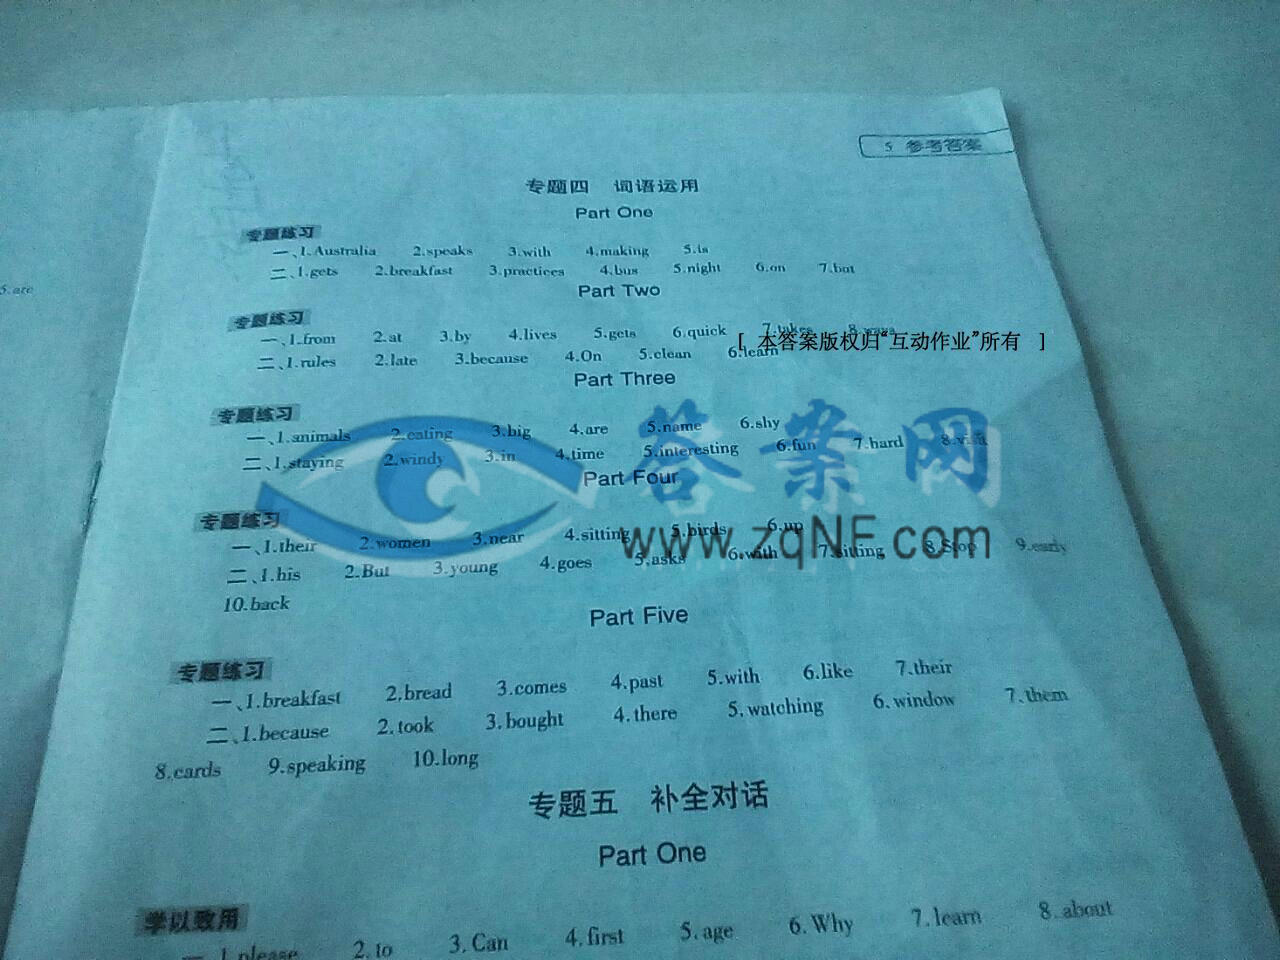 5 参考答案
专题四 词语运用
Part One
专题练习
一、1.Australia 2.speaks 3.with 4.making 5.is
二、1.gets 2.breakfast 3.practices 4.bus 5.night 6.on 7.but
5.are
Part Two
专题练习
一、1.from 2.at 3.by 4.lives 5.gets 6.quick 7.takes 8.ways
[ 本答案版权归“互动作业”所有 ]
二、1.rules 2.late 3.because 4.On 5.clean 6.learn
Part Three
专题练习
一、1.animals 2.eating 3.big 4.are 5.name 6.shy
二、1.staying 2.windy 3.in 4.time 5.interesting 6.fun 7.hard 8.visit
答案网
Part Four
专题练习
www.zqNF.com
一、1.their 2.women 3.near 4.sitting 5.birds 6.up
二、1.his 2.But 3.young 4.goes 5.asks 6.with 7.sitting 8.Stop 9.early
10.back
Part Five
专题练习
一、1.breakfast 2.bread 3.comes 4.past 5.with 6.like 7.their
二、1.because 2.took 3.bought 4.there 5.watching 6.window 7.them
8.cards 9.speaking 10.long
专题五 补全对话
Part One
学以致用
一、1.please 2.to 3.Can 4.first 5.age 6.Why 7.learn 8.about